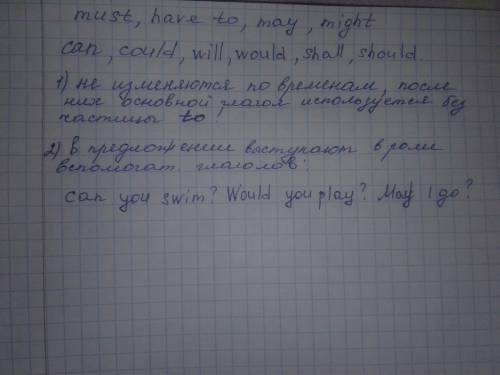 must, have to, may, might
can, could, will, would, shall, should.
1) не изменяются по временам, после
них основной глагол используется без
частицы to
2) в предложении выступают в роли
вспомогат. глаголов:
can you swim? Would you play? May I go?